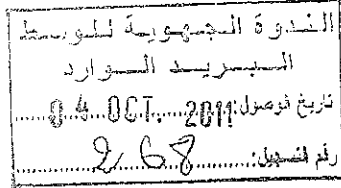 الندوة الجهوية للوسط
البريد الوارد
تاريخ الوصول: 04 OCT. 2011
رقم التسجيل: 268